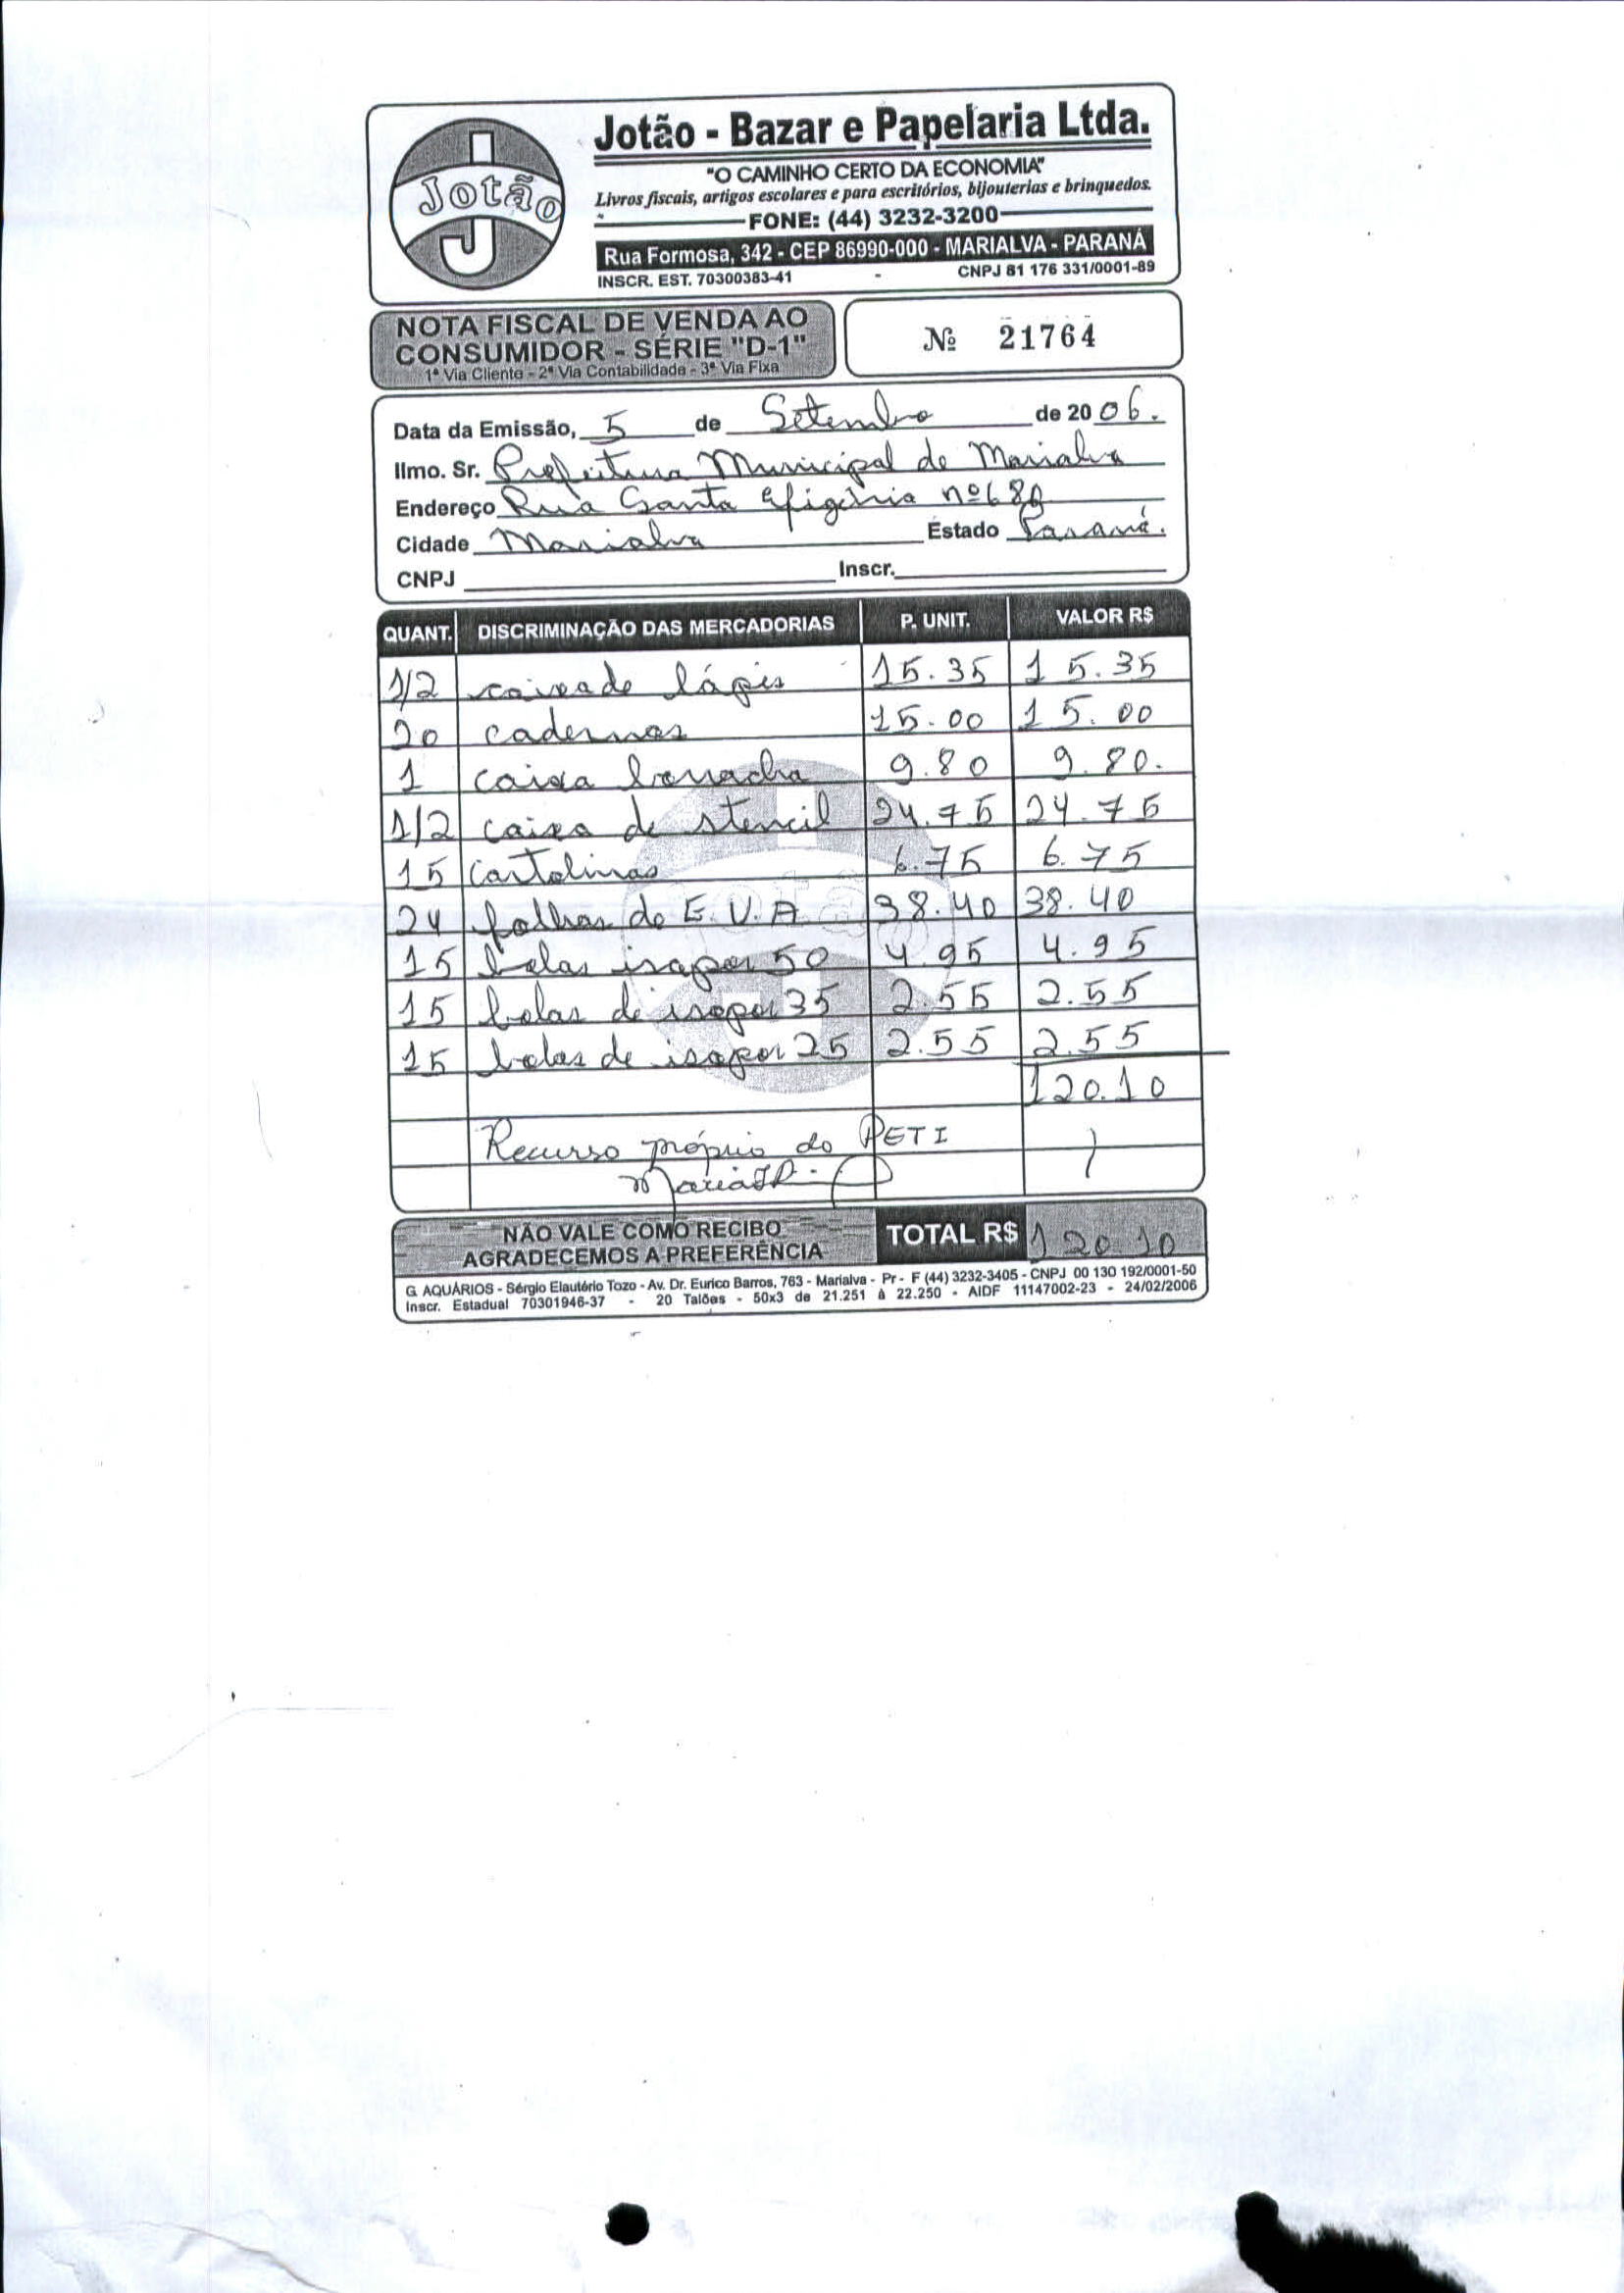 Jotão
Jotão - Bazar e Papelaria Ltda.
"O CAMINHO CERTO DA ECONOMIA"
Livros fiscais, artigos escolares e para escritórios, bijouterias e brinquedos.
FONE: (44) 3232-3200
Rua Formosa, 342 - CEP 86990-000 - MARIALVA - PARANÁ
INSCR. EST. 70300383-41 - CNPJ 81 176 331/0001-89
NOTA FISCAL DE VENDA AO
CONSUMIDOR - SÉRIE "D-1"
1ª Via Cliente - 2ª Via Contabilidade - 3ª Via Fixa
Nº 21764
Data da Emissão, 5 de Setembro de 2006.
Ilmo. Sr. Prefeitura Municipal de Marialva
Endereço Rua Santa Efigênia nº 680
Cidade Marialva Estado Paraná.
CNPJ Inscr.
QUANT. DISCRIMINAÇÃO DAS MERCADORIAS P. UNIT. VALOR R$
1/2 caixa de lápis 15.35 15.35
20 cadernos 15.00 15.00
1 caixa borracha 9.80 9.80.
1/2 caixa de stencil 24.75 24.75
15 Cartolinas 6.75 6.75
24 folhas de E.V.A. 38.40 38.40
15 bolas isopor 50 4.95 4.95
15 bolas de isopor 35 2.55 2.55
15 bolas de isopor 25 2.55 2.55
120.10
Recurso próprio do PETI
NÃO VALE COMO RECIBO
AGRADECEMOS A PREFERÊNCIA
TOTAL R$ 120.10
G. AQUÁRIOS - Sérgio Elautério Tozo - Av. Dr. Eurico Barros, 763 - Marialva - Pr - F (44) 3232-3405 - CNPJ 00 130 192/0001-50
Inscr. Estadual 70301946-37 - 20 Talões - 50x3 de 21.251 à 22.250 - AIDF 11147002-23 - 24/02/2006